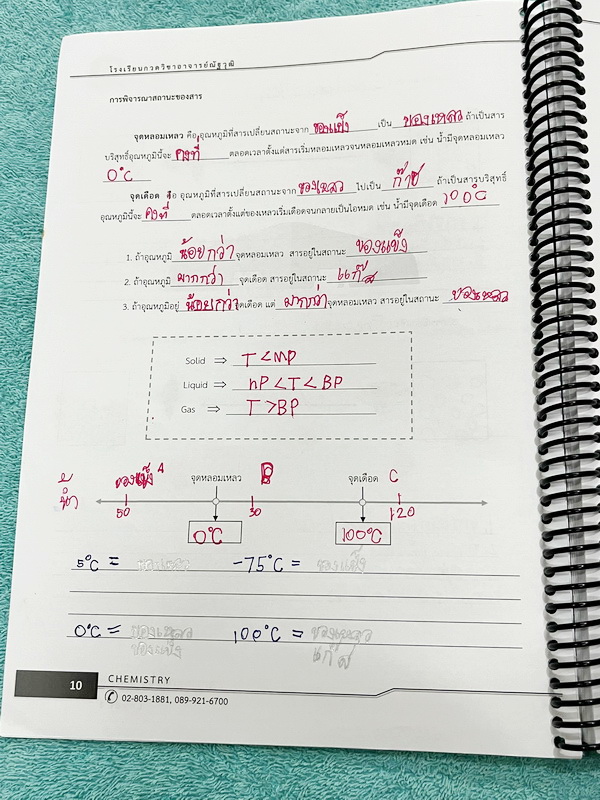 โรงเรียนกวดวิชาอาจารย์ณัฐวุฒิ
การพิจารณาสถานะของสาร
จุดหลอมเหลว คือ อุณหภูมิที่สารเปลี่ยนสถานะจาก ของแข็ง เป็น ของเหลว ถ้าเป็นสาร
บริสุทธิ์อุณหภูมินี้จะ คงที่ ตลอดเวลาตั้งแต่สารเริ่มหลอมเหลวจนหลอมเหลวหมด เช่น น้ำมีจุดหลอมเหลว
0°C
จุดเดือด คือ อุณหภูมิที่สารเปลี่ยนสถานะจาก ของเหลว ไปเป็น ก๊าซ ถ้าเป็นสารบริสุทธิ์
อุณหภูมินี้จะ คงที่ ตลอดเวลาตั้งแต่ของเหลวเริ่มเดือดจนกลายเป็นไอหมด เช่น น้ำมีจุดเดือด 100°C
1. ถ้าอุณหภูมิ น้อยกว่า จุดหลอมเหลว สารอยู่ในสถานะ ของแข็ง
2. ถ้าอุณหภูมิ มากกว่า จุดเดือด สารอยู่ในสถานะ แก๊ส
3. ถ้าอุณหภูมิอยู่ น้อยกว่า จุดเดือด แต่ มากกว่า จุดหลอมเหลว สารอยู่ในสถานะ ของเหลว
Solid ⇒ T < MP
Liquid ⇒ MP < T < BP
Gas ⇒ T > BP
น้ำ ของแข็ง A จุดหลอมเหลว B จุดเดือด C
50 30 120
0°C 100°C
5°C = ของเหลว -75°C = ของแข็ง
0°C = ของเหลว 100°C = ของเหลว
ของแข็ง แก๊ส
10 CHEMISTRY
02-803-1881, 089-921-6700